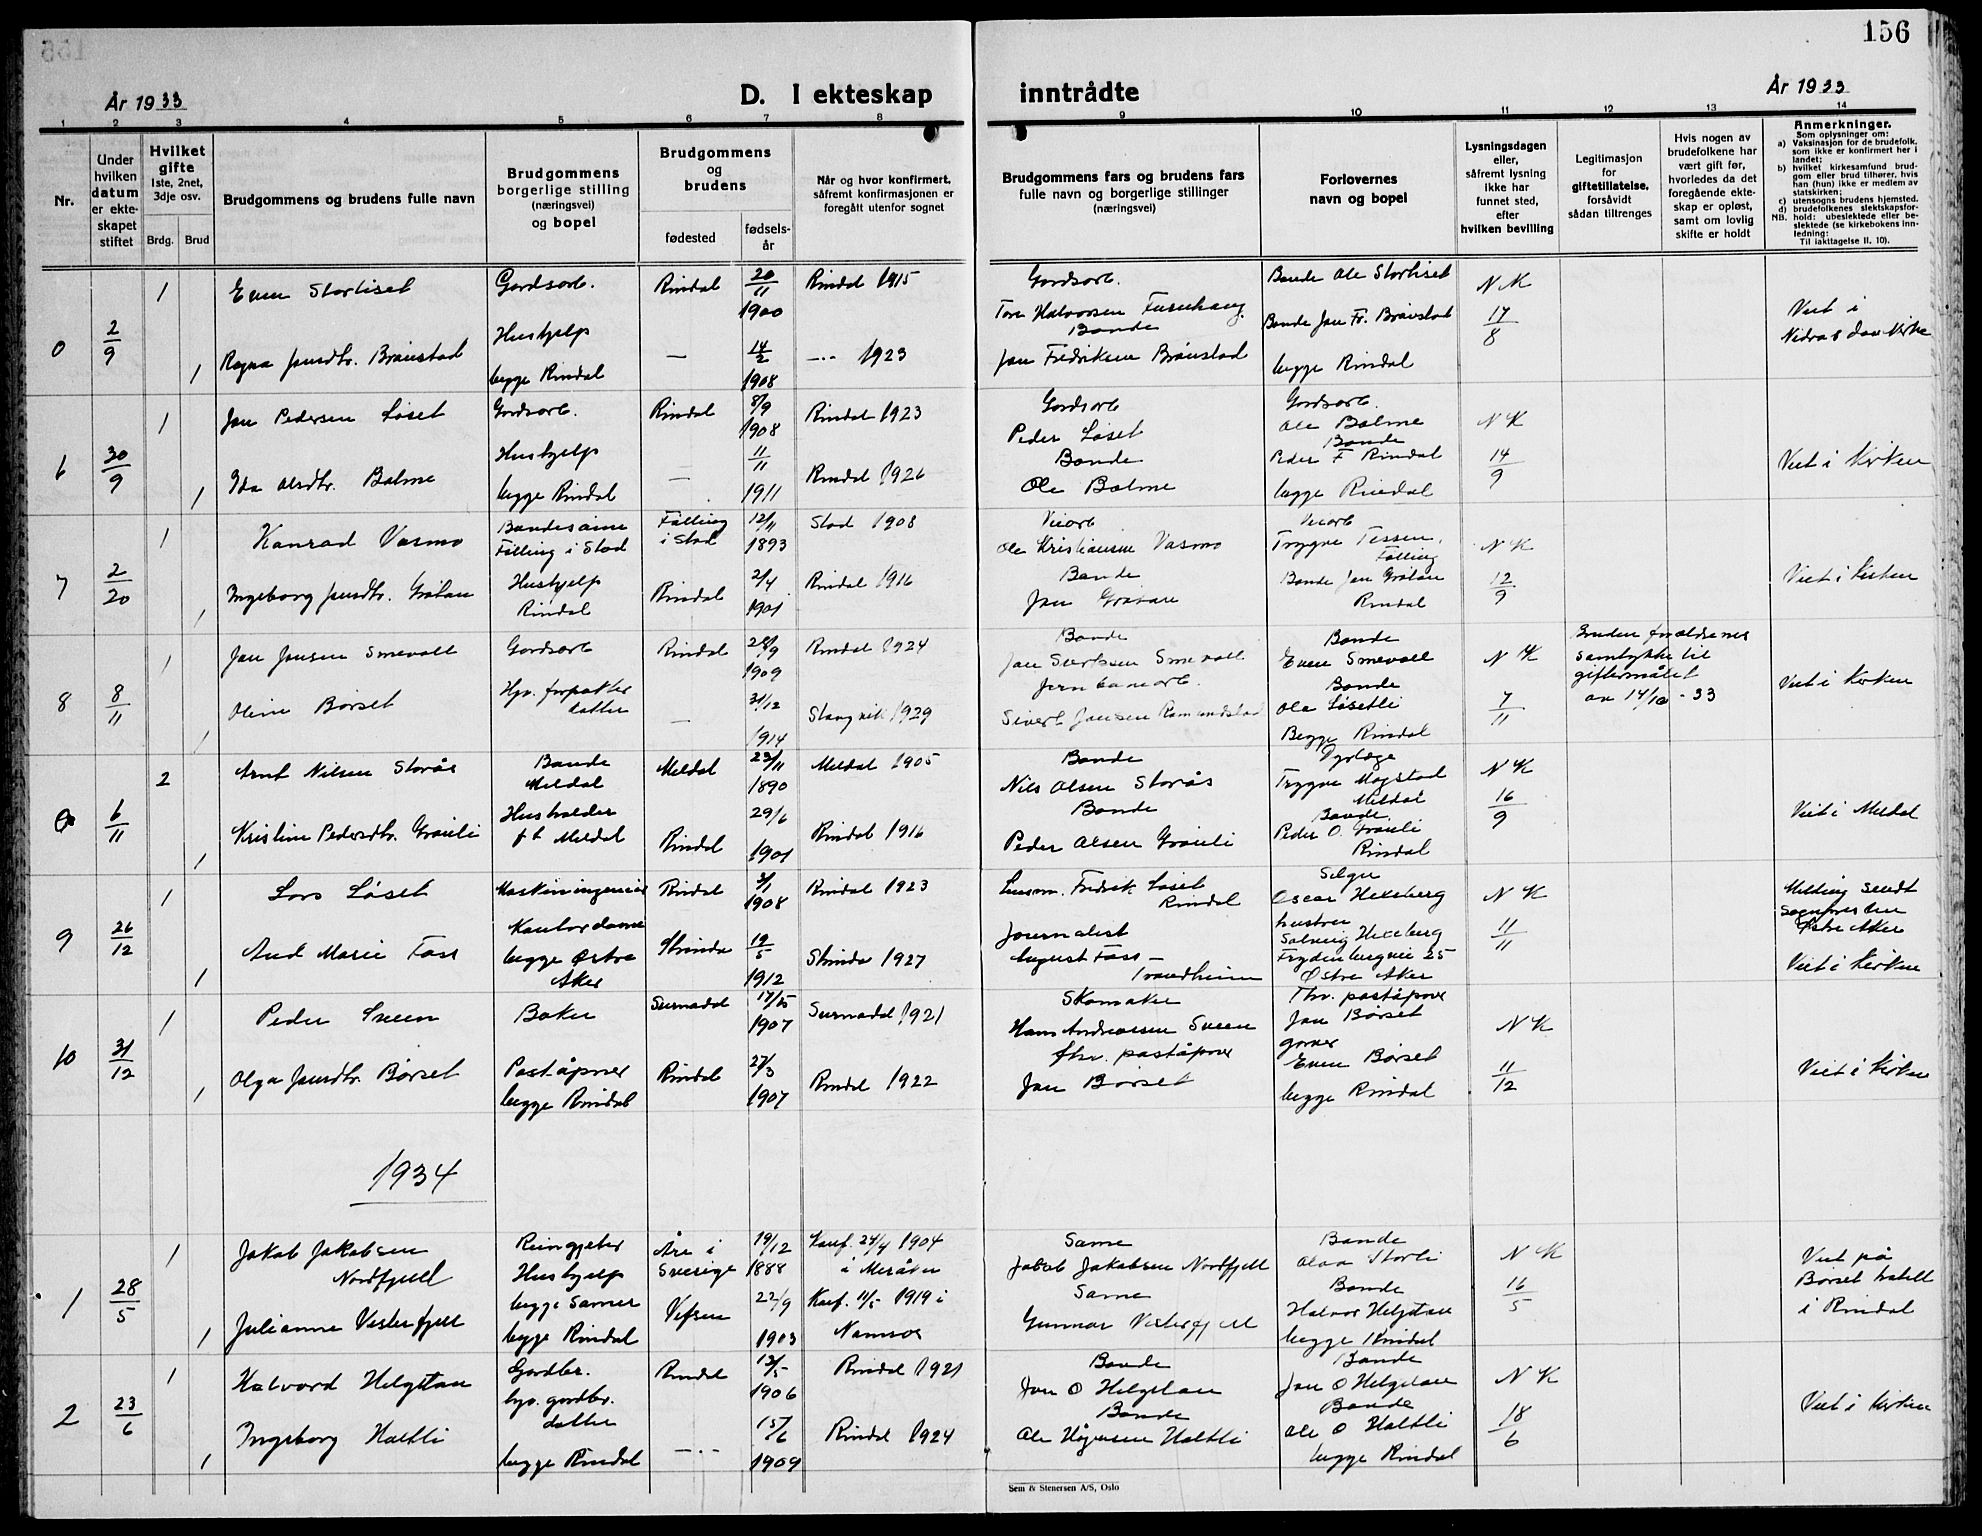 156
År 1933
D. I ekteskap inntrådte
År 1933
1 2 3 4 5 6 7 8 9 10 11 12 13 14
Nr.
Under hvilken datum er ekteskapet stiftet
Hvilket gifte 1ste, 2net, 3dje osv.
Brdg. Brud
Brudgommens og brudens fulle navn
Brudgommens borgerlige stilling (næringsvei) og bopel
Brudgommens og brudens
fødested
fødselsår
Når og hvor konfirmert, såfremt konfirmasjonen er foregått utenfor sognet
Brudgommens fars og brudens fars fulle navn og borgerlige stillinger (næringsvei)
Forlovernes navn og bopel
Lysningsdagen eller, såfremt lysning ikke har funnet sted, efter hvilken bevilling
Legitimasjon for giftetillatelse, forsåvidt sådan tiltrenges
Hvis nogen av brudefolkene har vært gift før, hvorledes da det foregående ekteskap er opløst, samt om lovlig skifte er holdt
Anmerkninger.
Som oplysninger om:
a) Vaksinasjon for de brudefolk, som ikke er konfirmert her i landet;
b) hvilket kirkesamfund brudgom eller brud tilhører, hvis han (hun) ikke er medlem av statskirken;
c) utensogns brudens hjemsted.
d) brudefolkenes slektskapsforhold: ubeslektede eller beslektede (se kirkebokens innledning:
NB. Til iakttagelse II. 10).
1 Even Storliset Gardsarb. Rindal 20/11 1900 Rindal 1915 Gardsarb. Bonde Ole Storliset N K
2/9 Tore Halvorsen Furuhaug Bonde Jon Fr. Brønstad 17/8 Viet i
Ragna Jonsdtr. Brønstad Hushjelp — 14/2 1908 1923 Bonde Jon Fredriksen Brønstad
1 begge Rindal begge Rindal
1 Jon Pedersen Løset Gardsarb. Rindal 8/9 1908 Rindal 1923 Gardsarb Gardsarb. N K
6 30/9 Hushjelp 11/11 Peder Løset Ole Bolme
1 Ida Olsdtr. Bolme begge Rindal — 1911 Rindal 1926 Bonde Ole Bolme Bonde Peder F Rindal 14/9 Viet i Kirken
begge Rindal
1 Konrad Vasmo Følling i Stod 12/11 1893 Stod 1908 Veiarb Veiarb N K
7 2/20 Følling i Stod Ole Kristiansen Vasmo Trygve Tessem, Følling
1 Hushjelp Rindal Rindal 2/4 1901 Rindal 1916 Bonde Bonde Jon 12/9 Viet i Kirken
Rindal
1 Jon Jonsen Smevoll Gardsarb Rindal 1909 Rindal 1924 Bonde Bonde N K
8 8/11 Smevoll Even Smevoll samtykke til
1 Oline Børset datter — 31/12 1914 Stangvik 1929 Bonde Ola Løsetli 7/11 giftermålet Viet i Kirken
Sivert Jonsen Romundstad Begge Rindal av 14/10-33
2 Arnt Nilsen Storås Bonde Meldal Meldal 23/11 1890 Meldal 1905 Bonde N K
6/11 Nils Olsen Storås Trygve Mogstad Meldal
1 Husholder Meldal Rindal 29/6 1901 Rindal 1916 Bonde Bonde 16/9 Viet i Meldal
Peder Olsen Peder O. Rindal
1 Lars Løset Maskiningeniør Rindal 3/1 1908 Rindal 1923 Lensm. Fredrik Løset Rindal Oscar Hexeberg N K Melding sendt sognepresten Østre Aker
9 26/12 Kontordame Journalist hustru Solveig Hexeberg 11/11
1 Aud Marie Foss begge Østre Aker Strinda 19/5 1912 Strinda 1927 August Foss – Trondheim 25 Østre Aker Viet i Kirken
1 Peder Sveen Baker Surnadal 1907 Surnadal 1921 Skomaker Fhv. poståpner Jon Børset N K
10 31/12 Hans Andreassen Sveen
1 Olga Jonsdtr. Børset Poståpner Rindal 27/3 1907 Rindal 1922 fhv. poståpner Even Børset 11/12 Viet i Kirken
begge Rindal Jon Børset begge Rindal
1934
1 Jakob Jakobsen Nordfjell Reingjeter Åre i Sverige 19/12 1888 Konf. 24/4 1904 i Meråker Same Bonde N K Viet på
1 28/5 Hushjelp Jakob Jakobsen Nordfjell Olaa Storli Børset hotell
1 Julianne Vesterfjell begge Samer begge Rindal Vefsen 22/9 1903 Konf. 11/5 1919 i Namsos Same Bonde 16/5 i Rindal
Gunnar Vesterfjell Halvor Helgetun begge Rindal
1 Halvard Helgetun Gardbr. Rindal 13/5 1906 Rindal 1921 Bonde Bonde N K
2 23/6 hjv. gardbr. datter Jon O Helgetun Jon O Helgetun Viet i Kirken
1 Ingeborg Holtli begge Rindal 15/6 1909 Rindal 1924 Bonde Bonde 18/6
Holtli Ole O Holtli begge Rindal
Sem & Stenersen A/S, Oslo